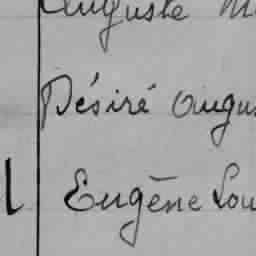 Auguste M
Désiré Augus
Eugène Lou